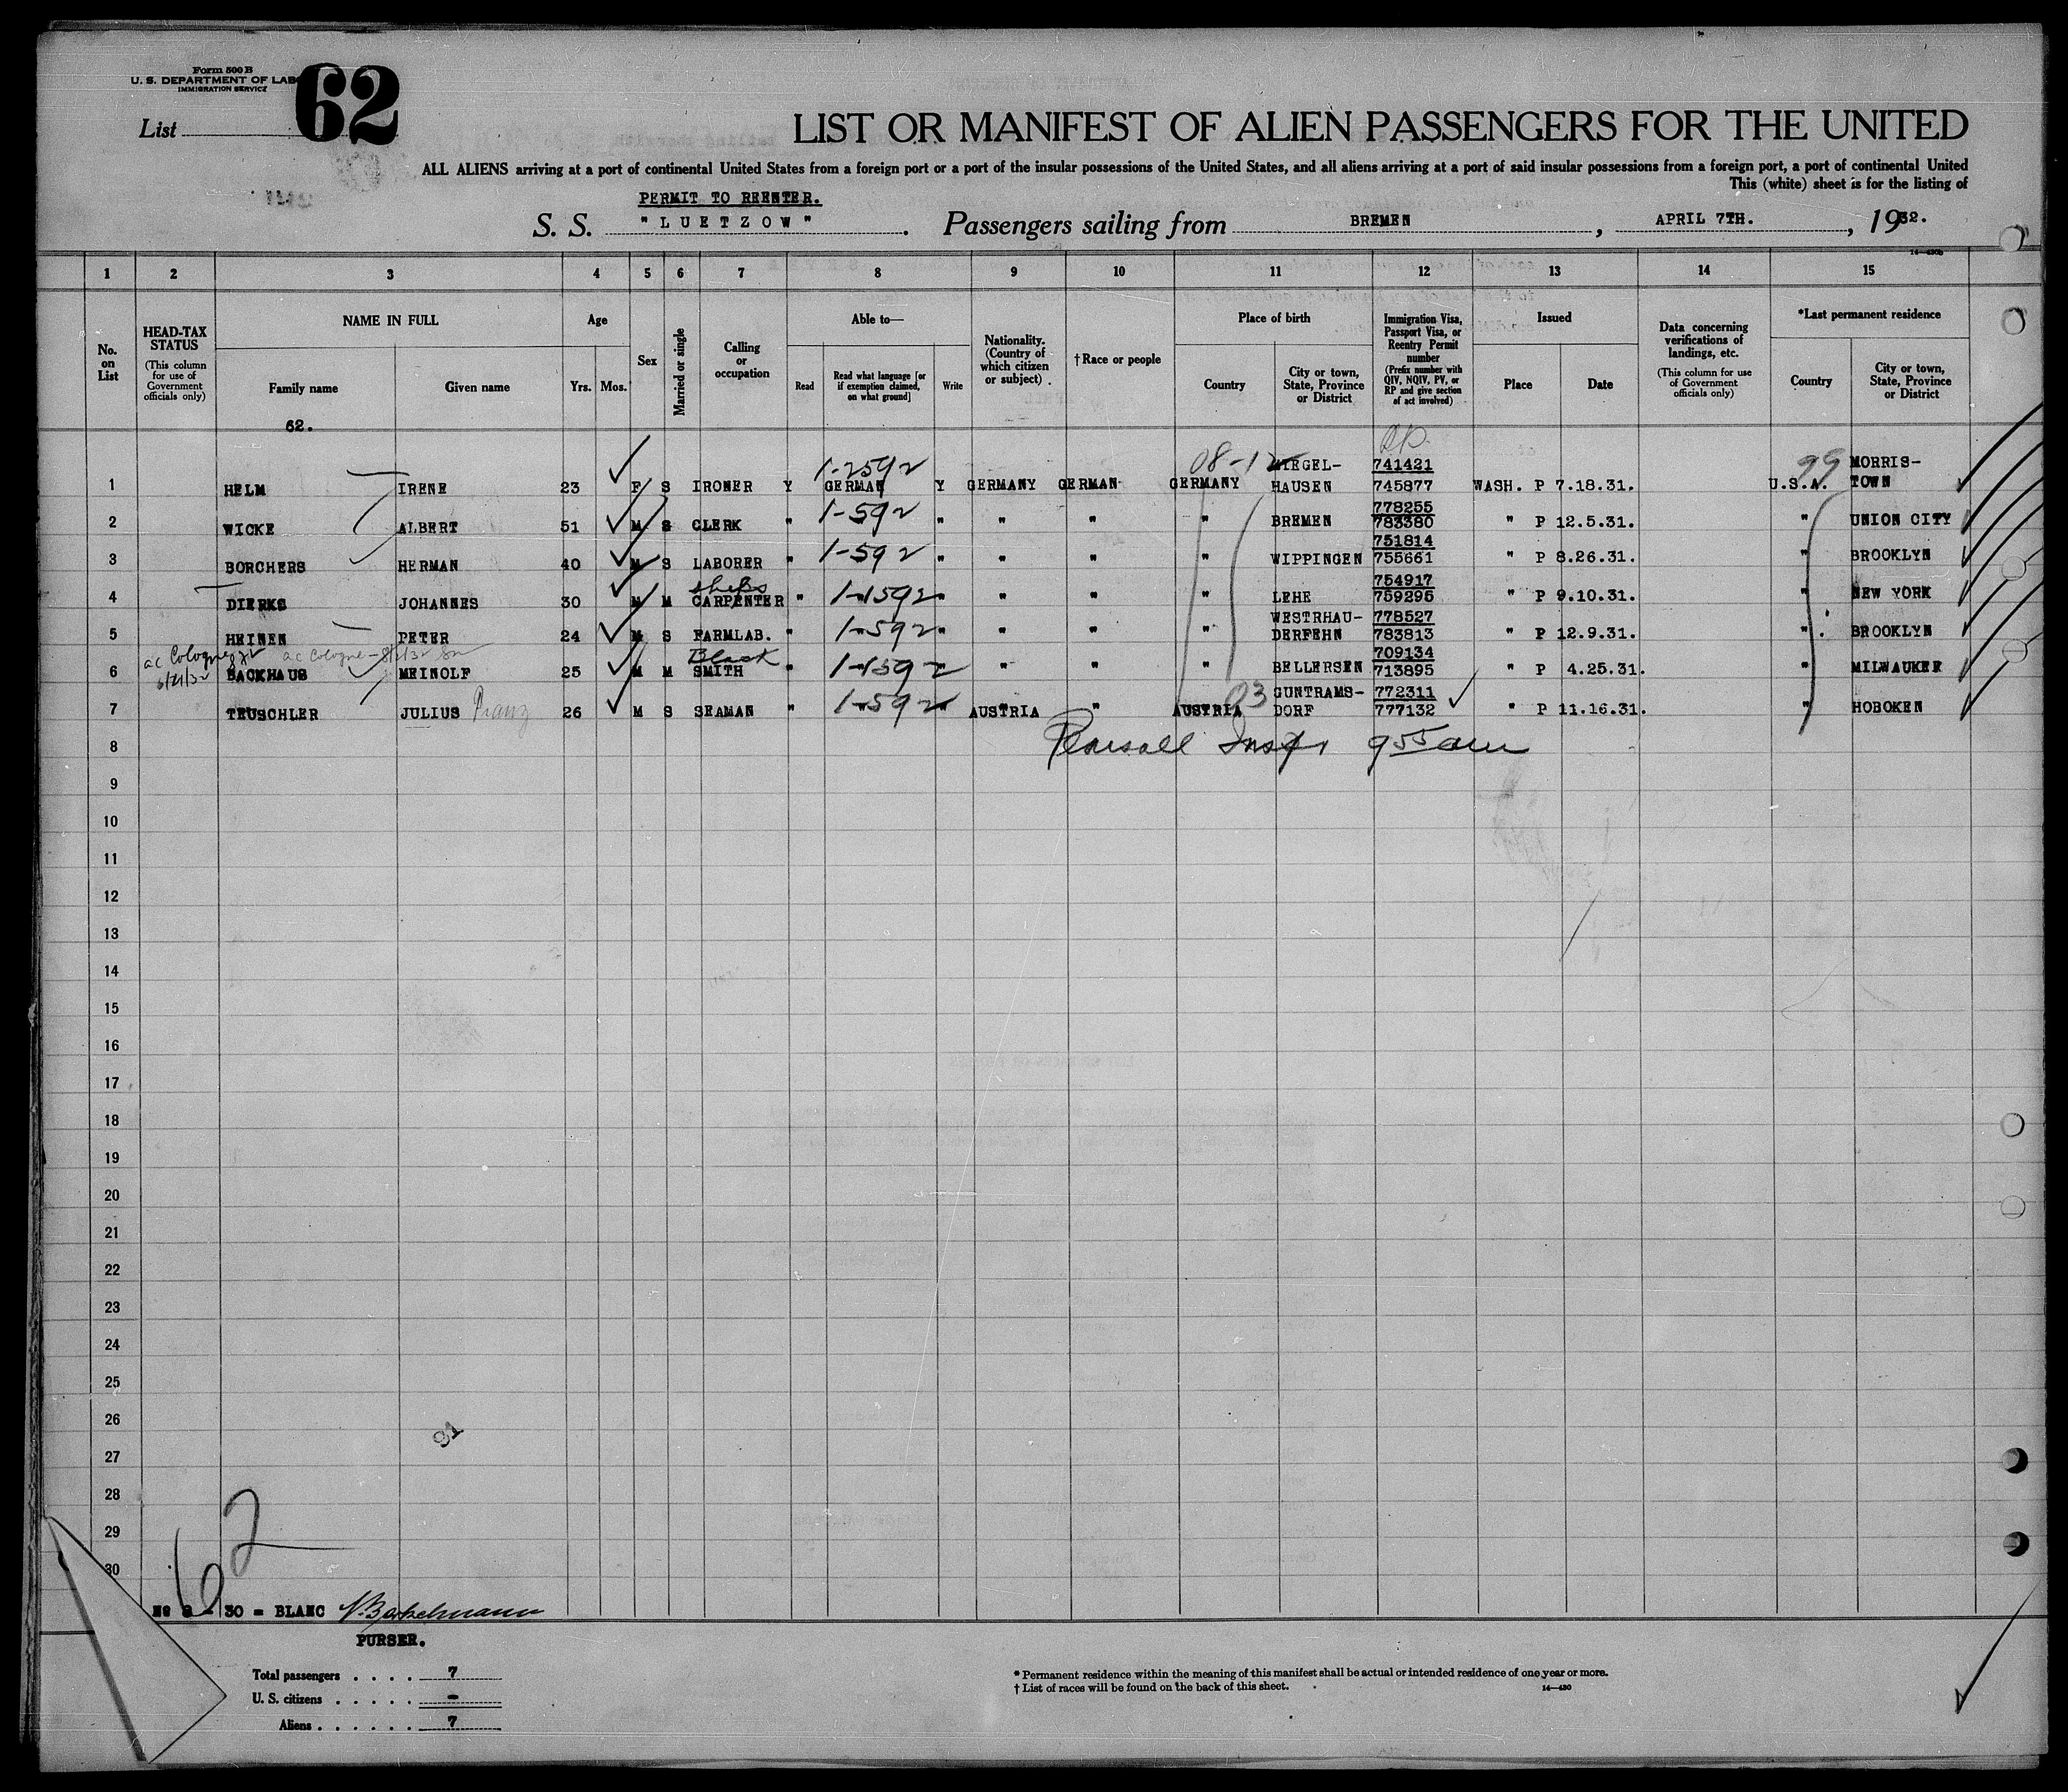 Form 500 B
U. S. DEPARTMENT OF LAB
IMMIGRATION SERVICE
List 62
LIST OR MANIFEST OF ALIEN PASSENGERS FOR THE UNITED
ALL ALIENS arriving at a port of continental United States from a foreign port or a port of the insular possessions of the United States, and all aliens arriving at a port of said insular possessions from a foreign port, a port of continental United
This (white) sheet is for the listing of
PERMIT TO REENTER.
S. S. "LUETZOW". Passengers sailing from BREMEN, APRIL 7TH., 1932.
14-430b
1 2 3 4 5 6 7 8 9 10 11 12 13 14 15
No. on List
HEAD-TAX STATUS (This column for use of Government officials only)
NAME IN FULL Family name Given name
Age Yrs. Mos.
Sex
Married or single
Calling or occupation
Able to— Read Read what language [or if exemption claimed, on what ground] Write
Nationality. (Country of which citizen or subject).
†Race or people
Place of birth Country City or town, State, Province or District
Immigration Visa, Passport Visa, or Reentry Permit number (Prefix number with QIV, NQIV, PV, or RP and give section of act involved)
Issued Place Date
Data concerning verifications of landings, etc. (This column for use of Government officials only)
*Last permanent residence Country City or town, State, Province or District
62.
RP.
1-2592 08-12 WIEGEL- 741421 99 MORRIS-
1 HELM IRENE 23 F S IRONER Y GERMAN Y GERMANY GERMAN GERMANY HAUSEN 745877 WASH. P 7.18.31. U.S.A. TOWN
1-592 778255
2 WICKE ALBERT 51 M S CLERK " " " " " BREMEN 783380 " P 12.5.31. " UNION CITY
1-592 751814
3 BORCHERS HERMAN 40 M S LABORER " " " " " WIPPINGEN 755661 " P 8.26.31. " BROOKLYN
ships 754917
4 DIERKS JOHANNES 30 M M CARPENTER " 1-1592 " " " " LEHE 759295 " P 9.10.31. " NEW YORK
WESTRHAU- 778527
5 HEINEN PETER 24 M S FARMLAB. " 1-592 " " " " DERFEHN 783813 " P 12.9.31. " BROOKLYN
ac Cologne ac Cologne - 8/2/32 Black 709134
6 6/21/32 BACKHAUS MEINOLF 25 M M SMITH " 1-1592 " " " BELLERSEN 713895 " P 4.25.31. " MILWAUKEE
03 GUNTRAMS- 772311
7 TEUSCHLER JULIUS Franz 26 M S SEAMAN " 1-592 " AUSTRIA " AUSTRIA DORF 777132 " P 11.16.31. " HOBOKEN
8 Pearsall Inspr 9 55 am
9
10
11
12
13
14
15
16
17
18
19
20
21
22
23
24
25
26
91
27
28
29
30
62
№ 8 - 30 = BLANC
PURSER.
Total passengers . . . . 7
U. S. citizens . . . . . -
Aliens . . . . . . 7
* Permanent residence within the meaning of this manifest shall be actual or intended residence of one year or more.
† List of races will be found on the back of this sheet. 14—430